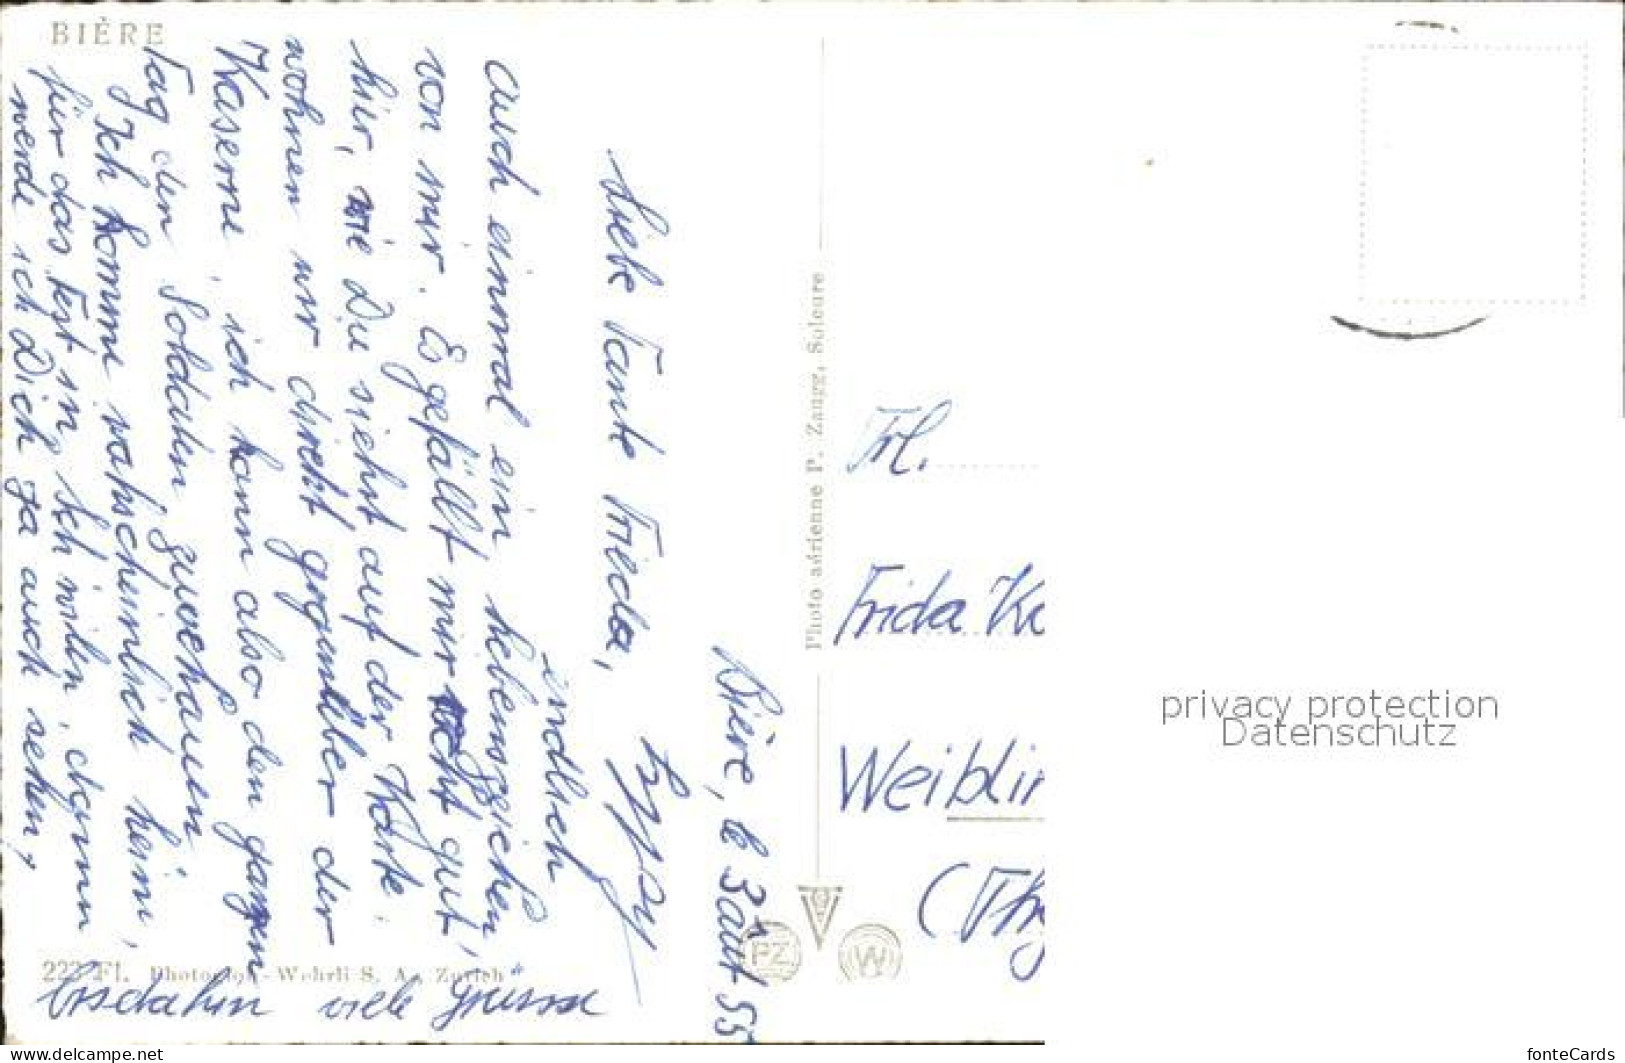 BIÈRE
Bière, le 3 août 55
Liebe Tante Frieda,
endlich
auch einmal ein Lebenszeichen
von mir. Es gefällt mir gut
hier, wie Du siehst auf der Karte
wohnen wir direkt gegenüber der
Kaserne, ich kann also den ganzen
Tag den Soldaten zuschauen.
Ich komme wahrscheinlich heim,
für das Fest in, dann
werde ich Dich ja auch sehen,
bis dahin viele Grüsse
Photo aérienne P. Zaugg, Soleure
223 Fl. Photoglob-Wehrli S. A., Zurich
PZ
W
Frl.
Frida Ke
Weiblin
(Thrg
privacy protection
Datenschutz
www.delcampe.net
fonteCards